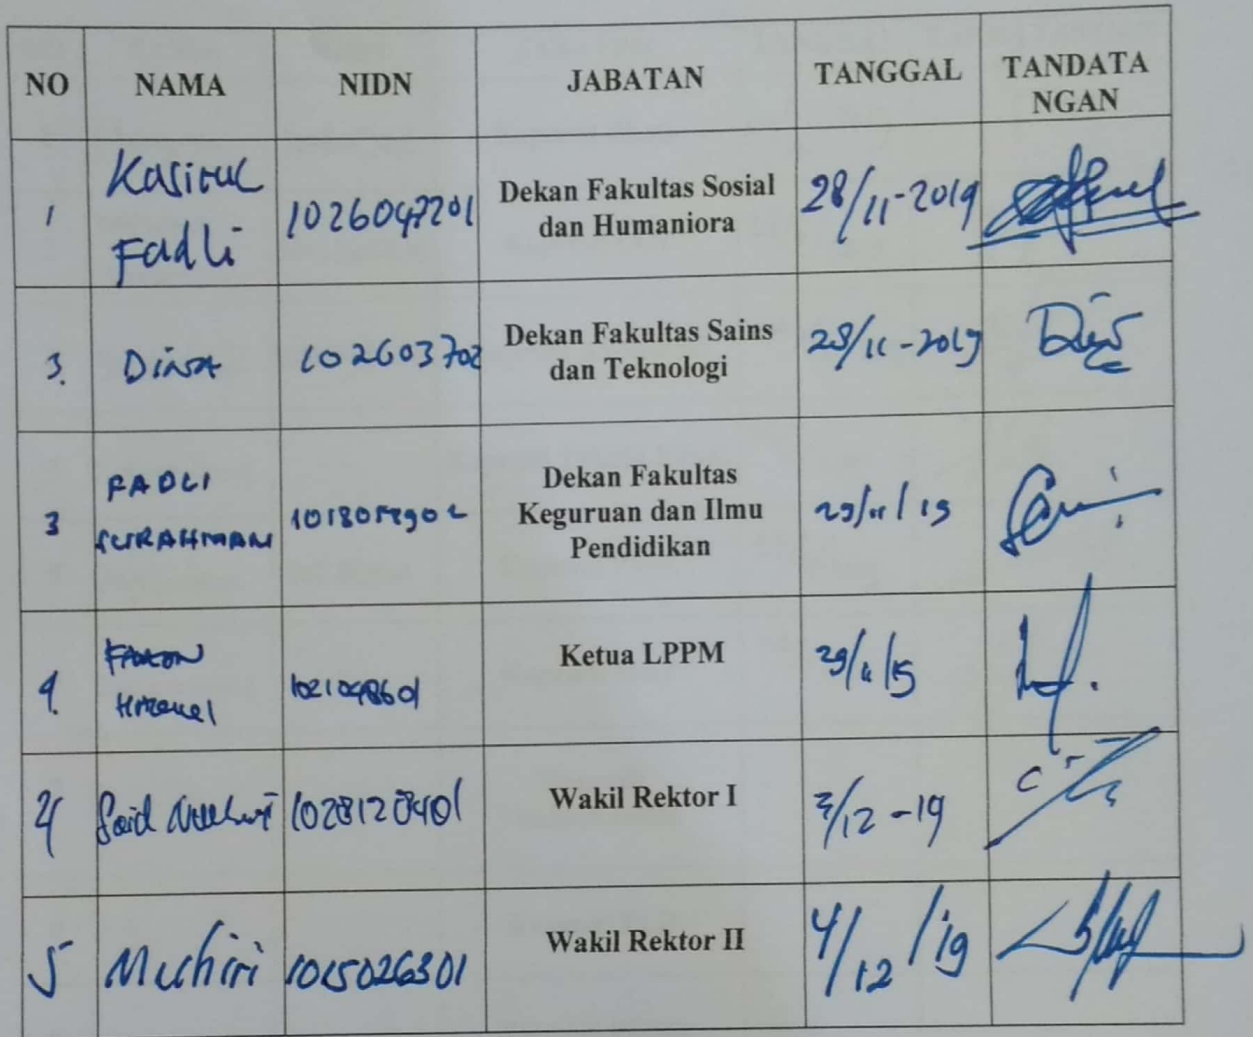 NO NAMA NIDN JABATAN TANGGAL TANDATA
NGAN
1 Kasirul
Fadli 1026047201 Dekan Fakultas Sosial
dan Humaniora 28/11-2019
3. Dina 102603702 Dekan Fakultas Sains
dan Teknologi 28/11-2019
3 FADLI
SURAHMAN Dekan Fakultas
Keguruan dan Ilmu
Pendidikan 29/11/19
4. Ketua LPPM
Said 1028128401 Wakil Rektor I 3/12-19
5 1015026301 Wakil Rektor II 4/12/19